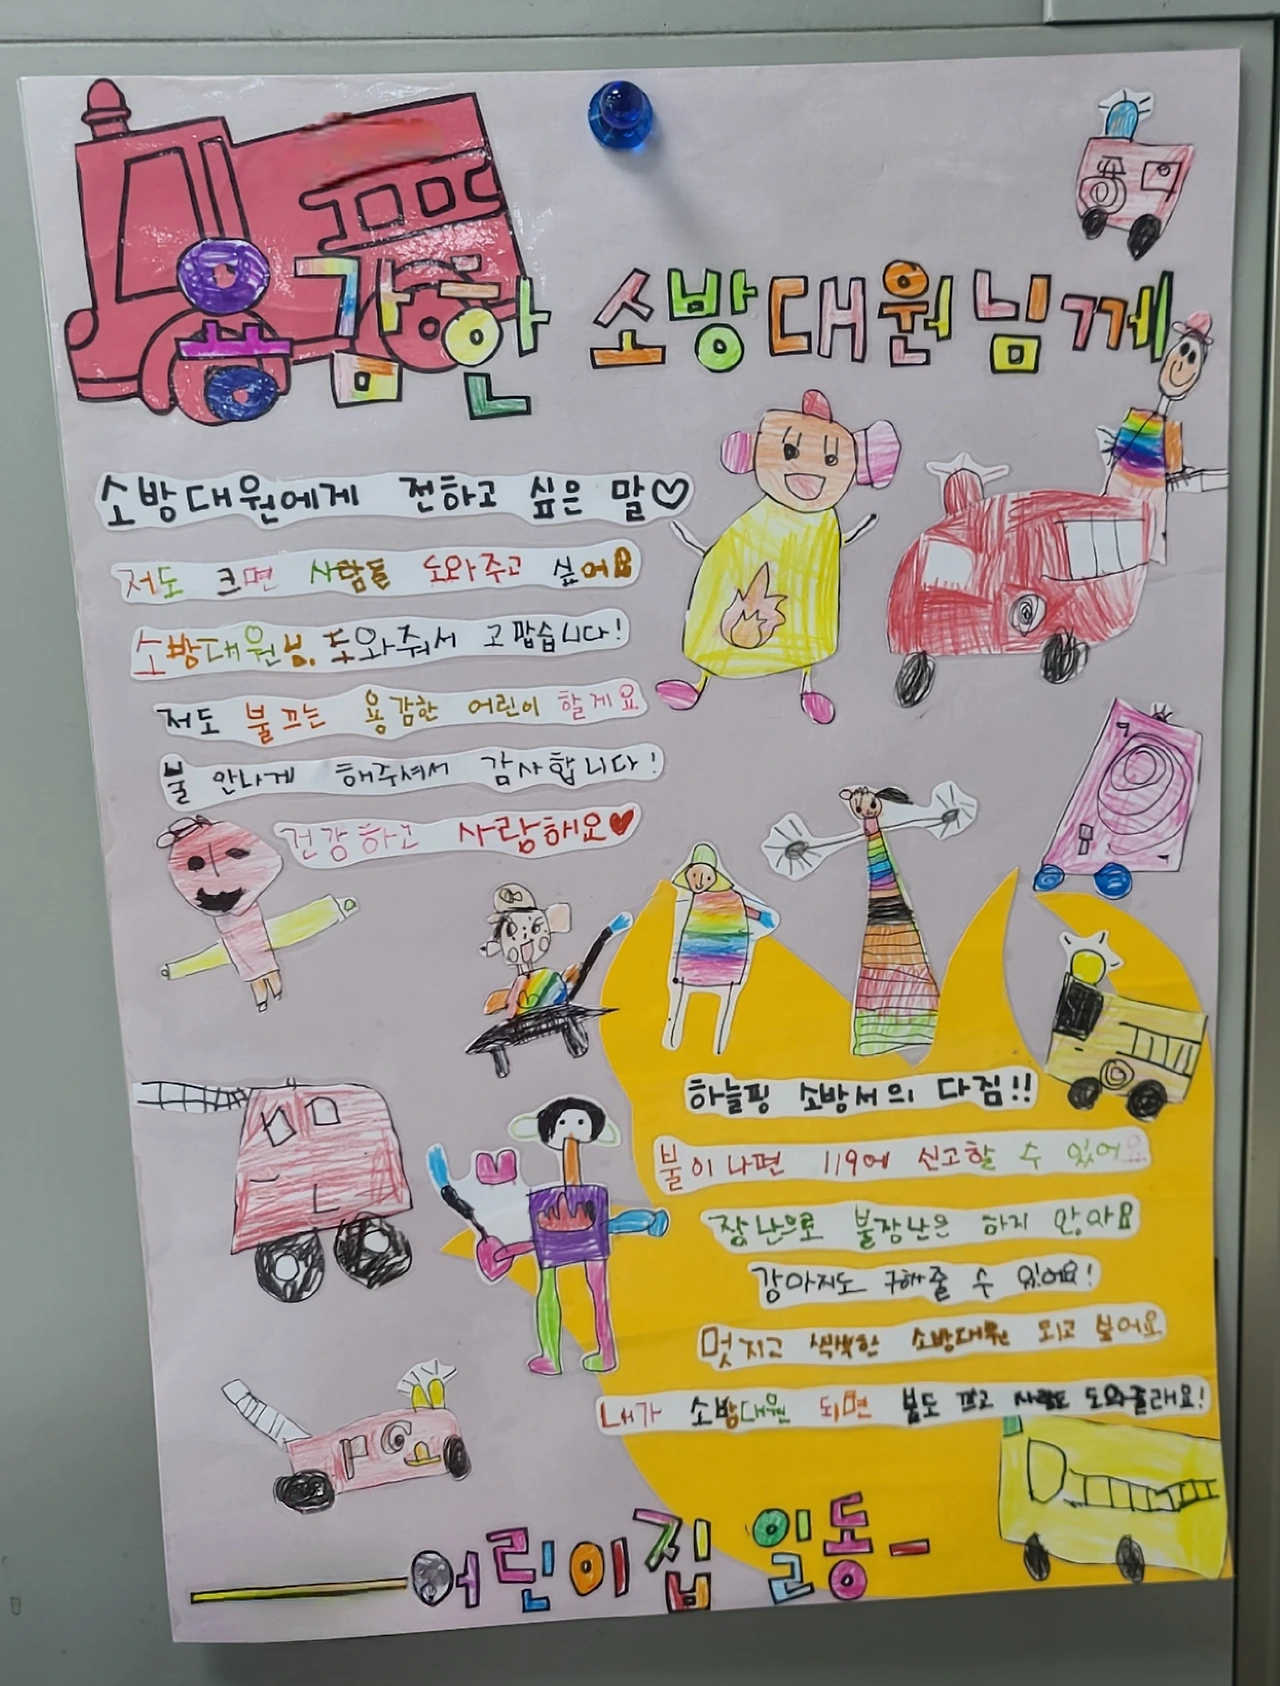 용감한 소방대원님께
소방대원에게 전하고 싶은 말♡
저도 크면 사람들 도와주고 싶어요
소방대원님, 도와줘서 고맙습니다!
저도 불끄는 용감한 어린이 할게요
불 안나게 해주셔서 감사합니다!
건강하고 사랑해요♥
하늘핑 소방서의 다짐!!
불이나면 119에 신고할 수 있어요
장난으로 불장난은 하지 않아요
강아지도 구해줄 수 있어요!
멋지고 씩씩한 소방대원 되고 싶어요
내가 소방대원 되면 불도 끄고 사람도 도와줄래요!
어린이집 일동-